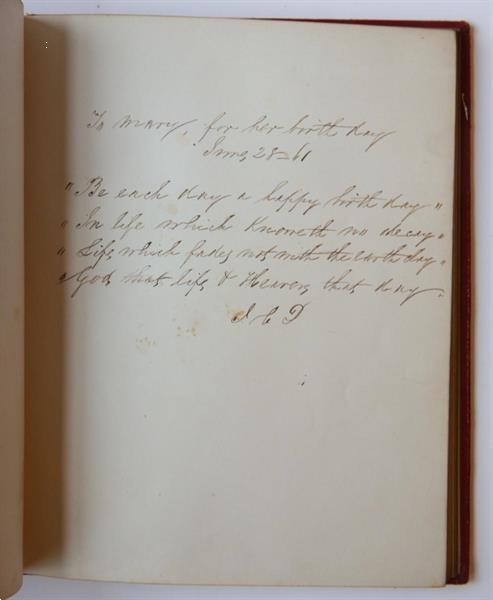 To Mary, for her birth day
June, 28=61
" Be each day a happy birth day "
" In life which knoweth no decay "
" Life, which fades not with the earth day "
" God that life, & Heaven, that day.
J C D